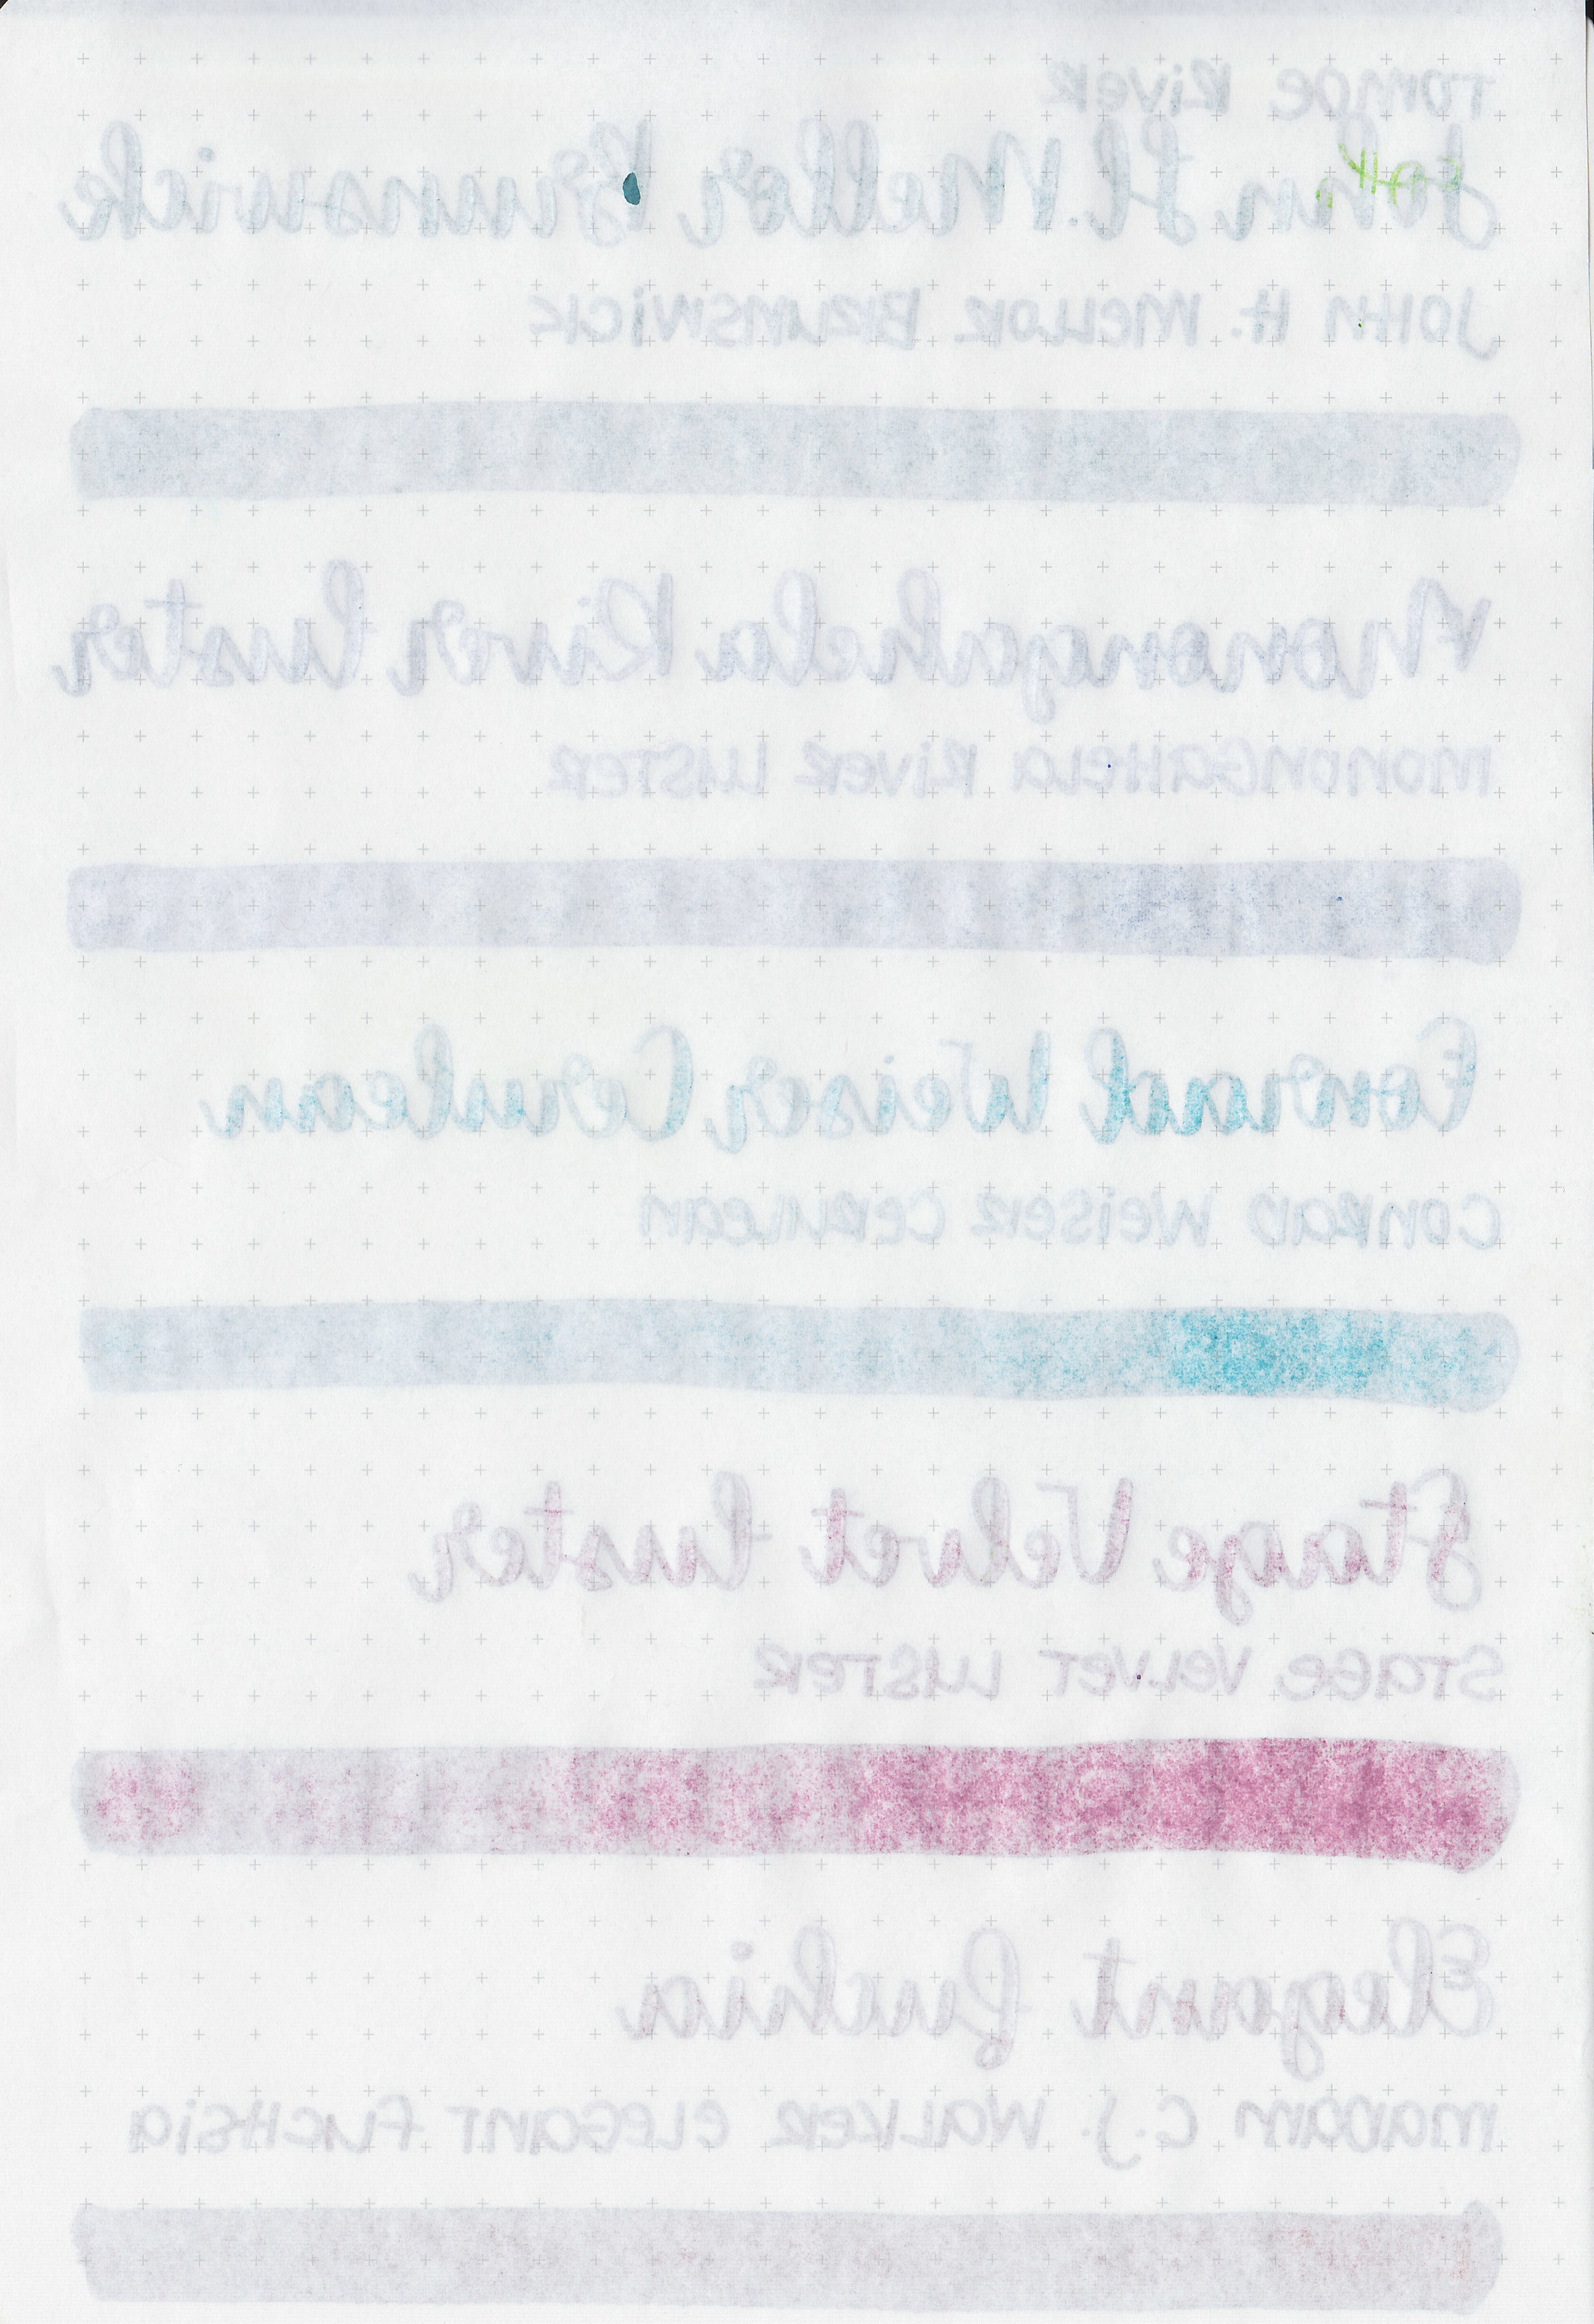 Tomoe River
John H. Mellor Brunswick
John H. Mellor Brunswick
Monongahela River Luster
Monongahela River Luster
Conrad Weiser Cerulean
Conrad Weiser Cerulean
Stage Velvet Luster
Stage Velvet Luster
Elegant Fuchia
Madam C.J. Walker Elegant Fuchsia